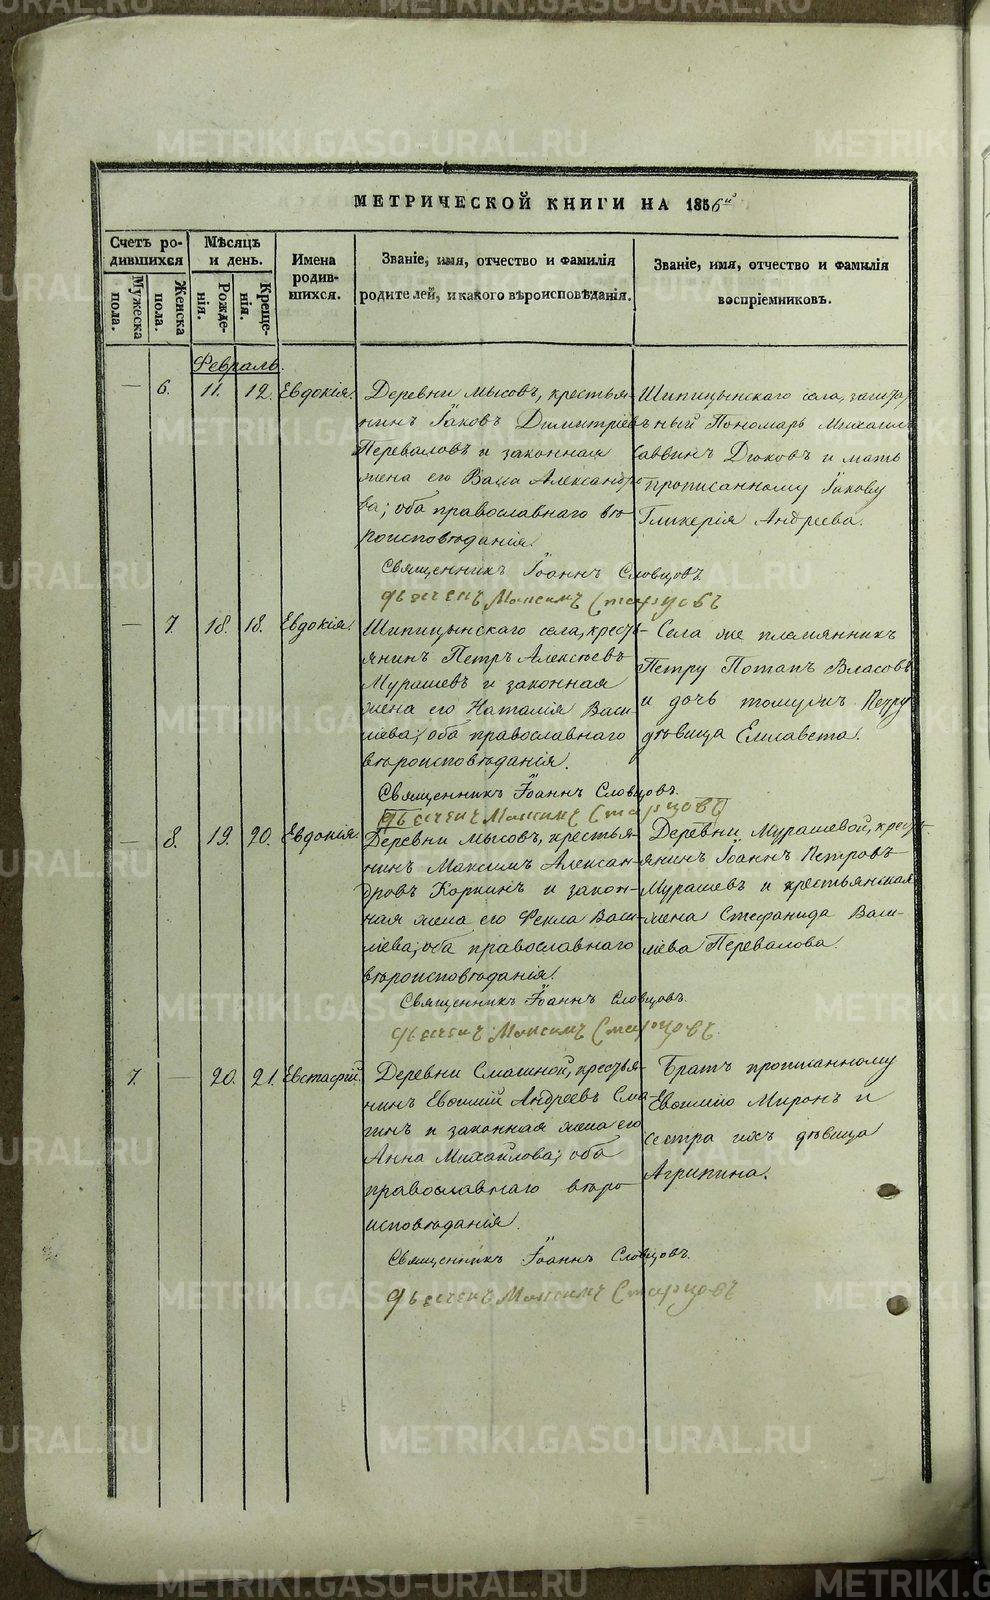 МЕТРИЧЕСКОЙ КНИГИ НА 1856й
Счетъ родившихся
Мѣсяцъ и день.
Имена родившихся.
Званіе, имя, отчество и фамилія родителей, и какого вѣроисповѣданія.
Званіе, имя, отчество и фамилія воспріемниковъ.
Мужеска пола.
Женска пола.
Рожденія.
Крещенія.
Февраль.
— 6. 11. 12. Евдокія.
Деревни Мысовъ, крестья-
нинъ Іаковъ Димитріевъ
Переваловъ и законная
жена его Васса Александро-
ва; оба православнаго вѣ-
роисповѣданія.
Шипицынскаго села,
Пономарь Михаилъ
Саввинъ Дюковъ и мать
прописанному Іакову
Гликерія Андреева.
Священникъ Іоаннъ Словцовъ.
Дьячекъ Максимъ Старцовъ
— 7. 18. 18. Евдокія.
Шипицынскаго села, кресть-
янинъ Петръ Алексѣевъ
Мурашевъ и законная
жена его Наталія Васи-
ліева; оба православнаго
вѣроисповѣданія.
Села же племянникъ
Петру Потапъ Власовъ
и дочь томужъ Петру
дѣвица Елисавета.
Священникъ Іоаннъ Словцовъ.
Дьячекъ Максимъ Старцовъ
— 8. 19. 20. Евдокія.
Деревни Мысовъ, крестья-
нинъ Максимъ Алексан-
дровъ Коркинъ и закон-
ная жена его Фекла Васи-
ліева; оба православнаго
вѣроисповѣданія.
Деревни Мурашевой, кресть-
янинъ Іоаннъ Петровъ
Мурашевъ и крестьянская
жена Стефанида Васи-
ліева Перевалова.
Священникъ Іоаннъ Словцовъ.
Дьячекъ Максимъ Старцовъ.
7. — 20. 21. Евстафій.
Деревни Смагиной, крестья-
нинъ Евфимій Андреевъ Сма-
гинъ и законная жена его
Анна Михайлова; оба
православнаго вѣро-
исповѣданія.
Братъ прописанному
Евфимію Миронъ и
сестра ихъ дѣвица
Агрипина.
Священникъ Іоаннъ Словцовъ.
Дьячекъ Максимъ Старцовъ
METRIKI.GASO-URAL.RU